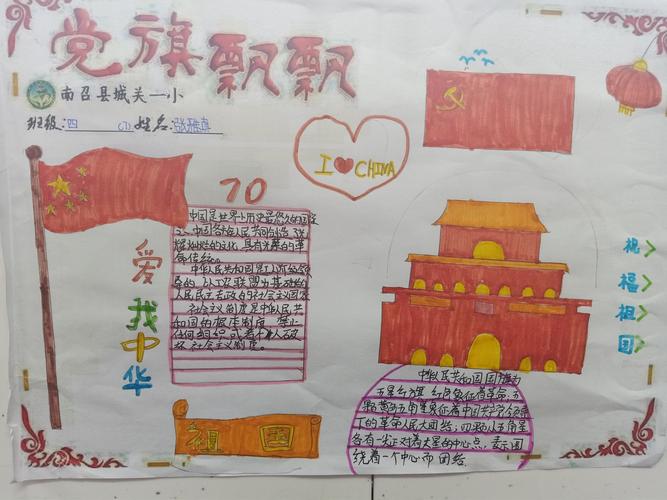 党旗飘飘
南召县城关一小
班级:四 (1) 姓名:张雅真
I CHINA
70
中国是世界上历史最悠久的国家
之一,中国各族人民共同创造了光
辉灿烂的文化,具有光荣的革
命传统。
中华人民共和国是工人阶级领
导的,以工农联盟为基础的
人民民主专政的社会主义国家
社会主义制度是中华人民共
和国的根本制度。禁止
任何组织或者个人破
坏社会主义制度。
爱我中华
祝福祖国
祖国
中华人民共和国国旗为
五星红旗,红色象征着革命,五
颗黄色五角星象征着中国共产党领
下的革命人民大团结,四颗小五角星
各有一尖正对着大星的中心点,表示围
绕着一个中心而团结